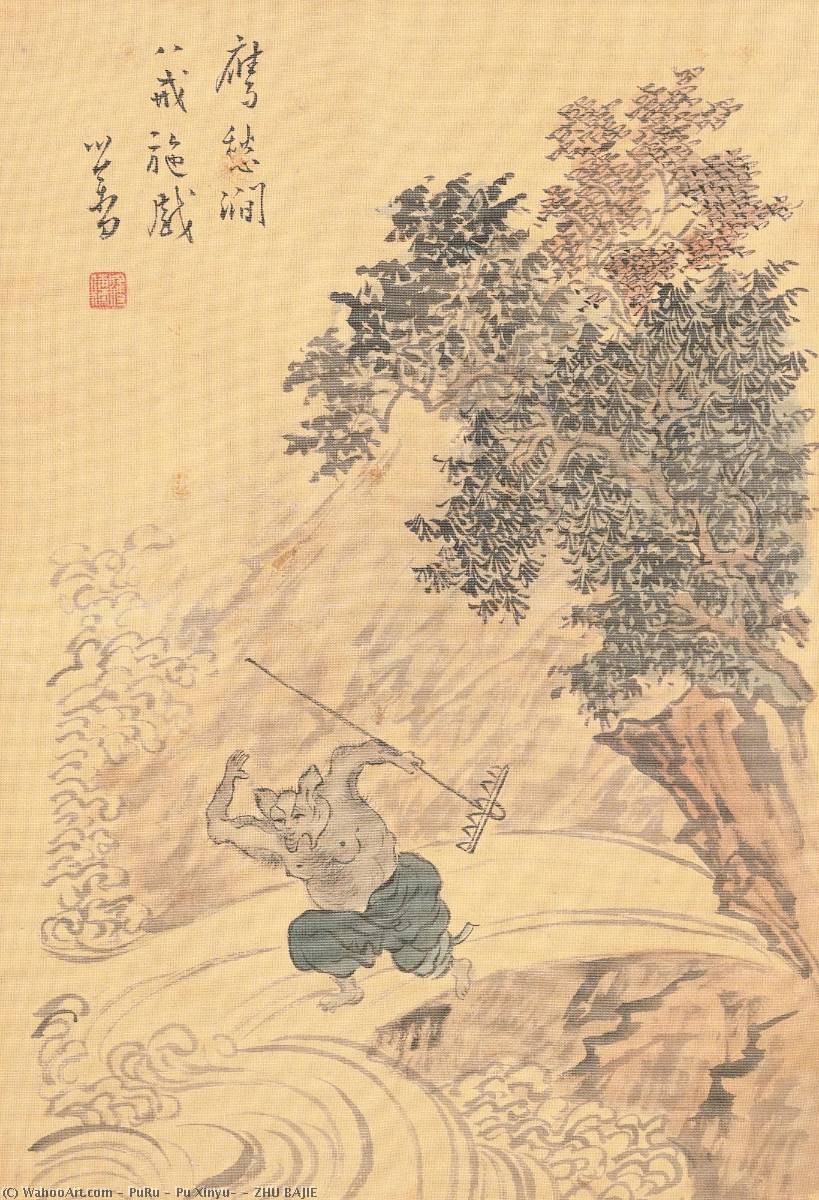 鷹愁澗
八戒施戲
心畬
(C) WahooArt.com - PuRu - Pu Xinyu- - ZHU BAJIE